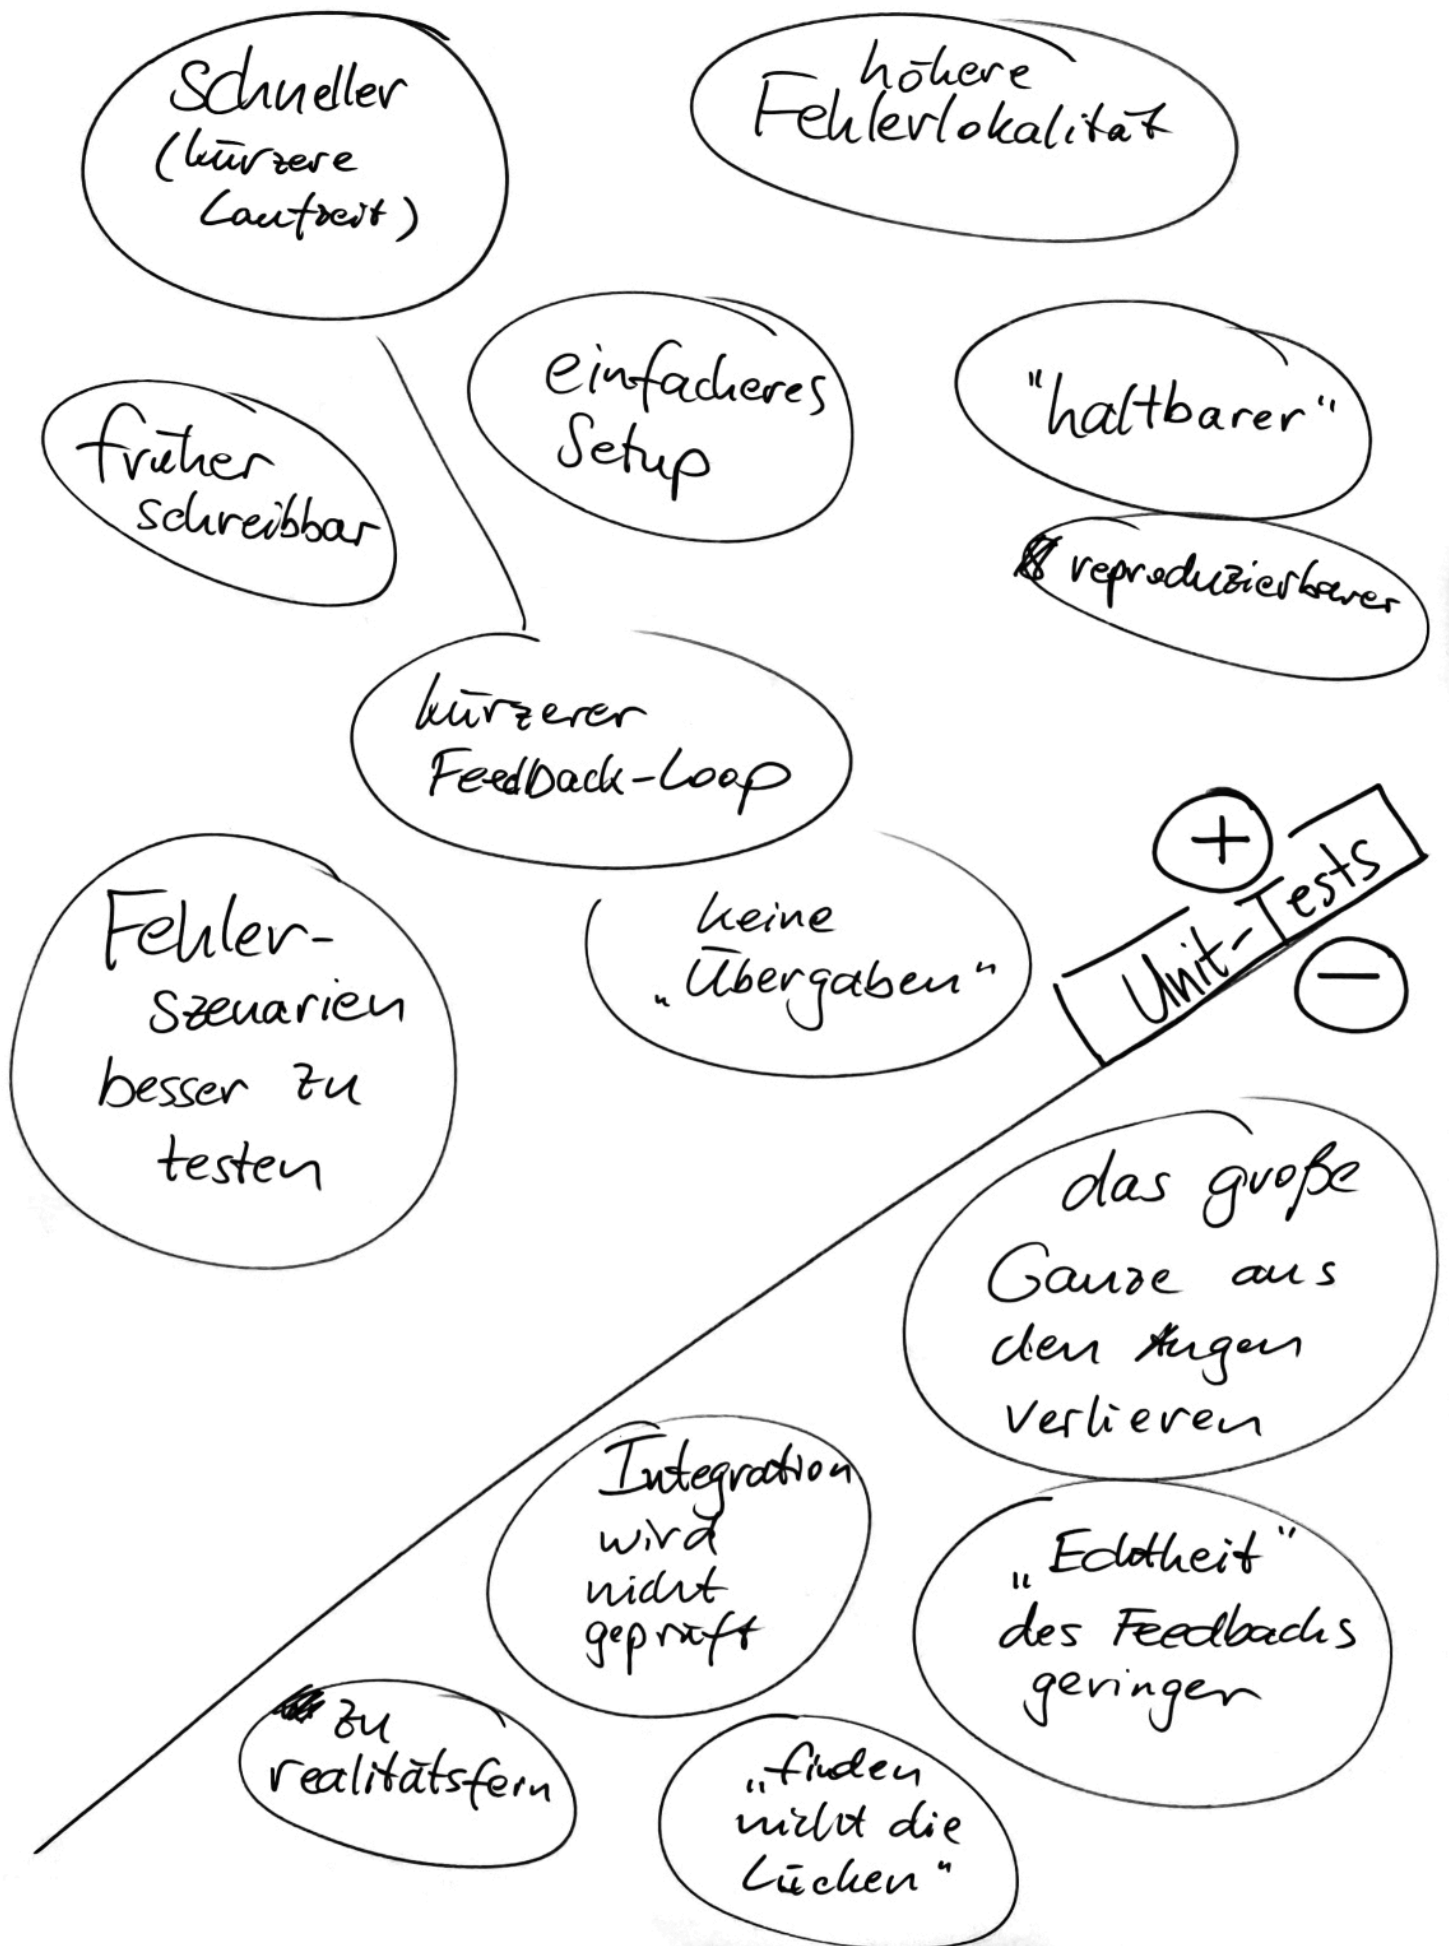 Schneller
(kürzere
Laufzeit)
höhere
Fehlerlokalität
einfacheres
Setup
"haltbarer"
früher
schreibbar
reproduzierbarer
kürzerer
Feedback-Loop
+
Unit-Tests
−
Fehler-
szenarien
besser zu
testen
keine
„Übergaben"
das große
Ganze aus
den Augen
verlieren
Integration
wird
nicht
geprüft
„Echtheit"
des Feedbacks
geringer
zu
realitätsfern
„finden
nicht die
Lücken"